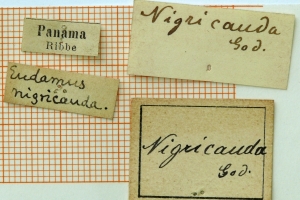 Panama
Ribbe
Nigricauda
God.
Eudamus
nigricauda.
Nigricauda
God.